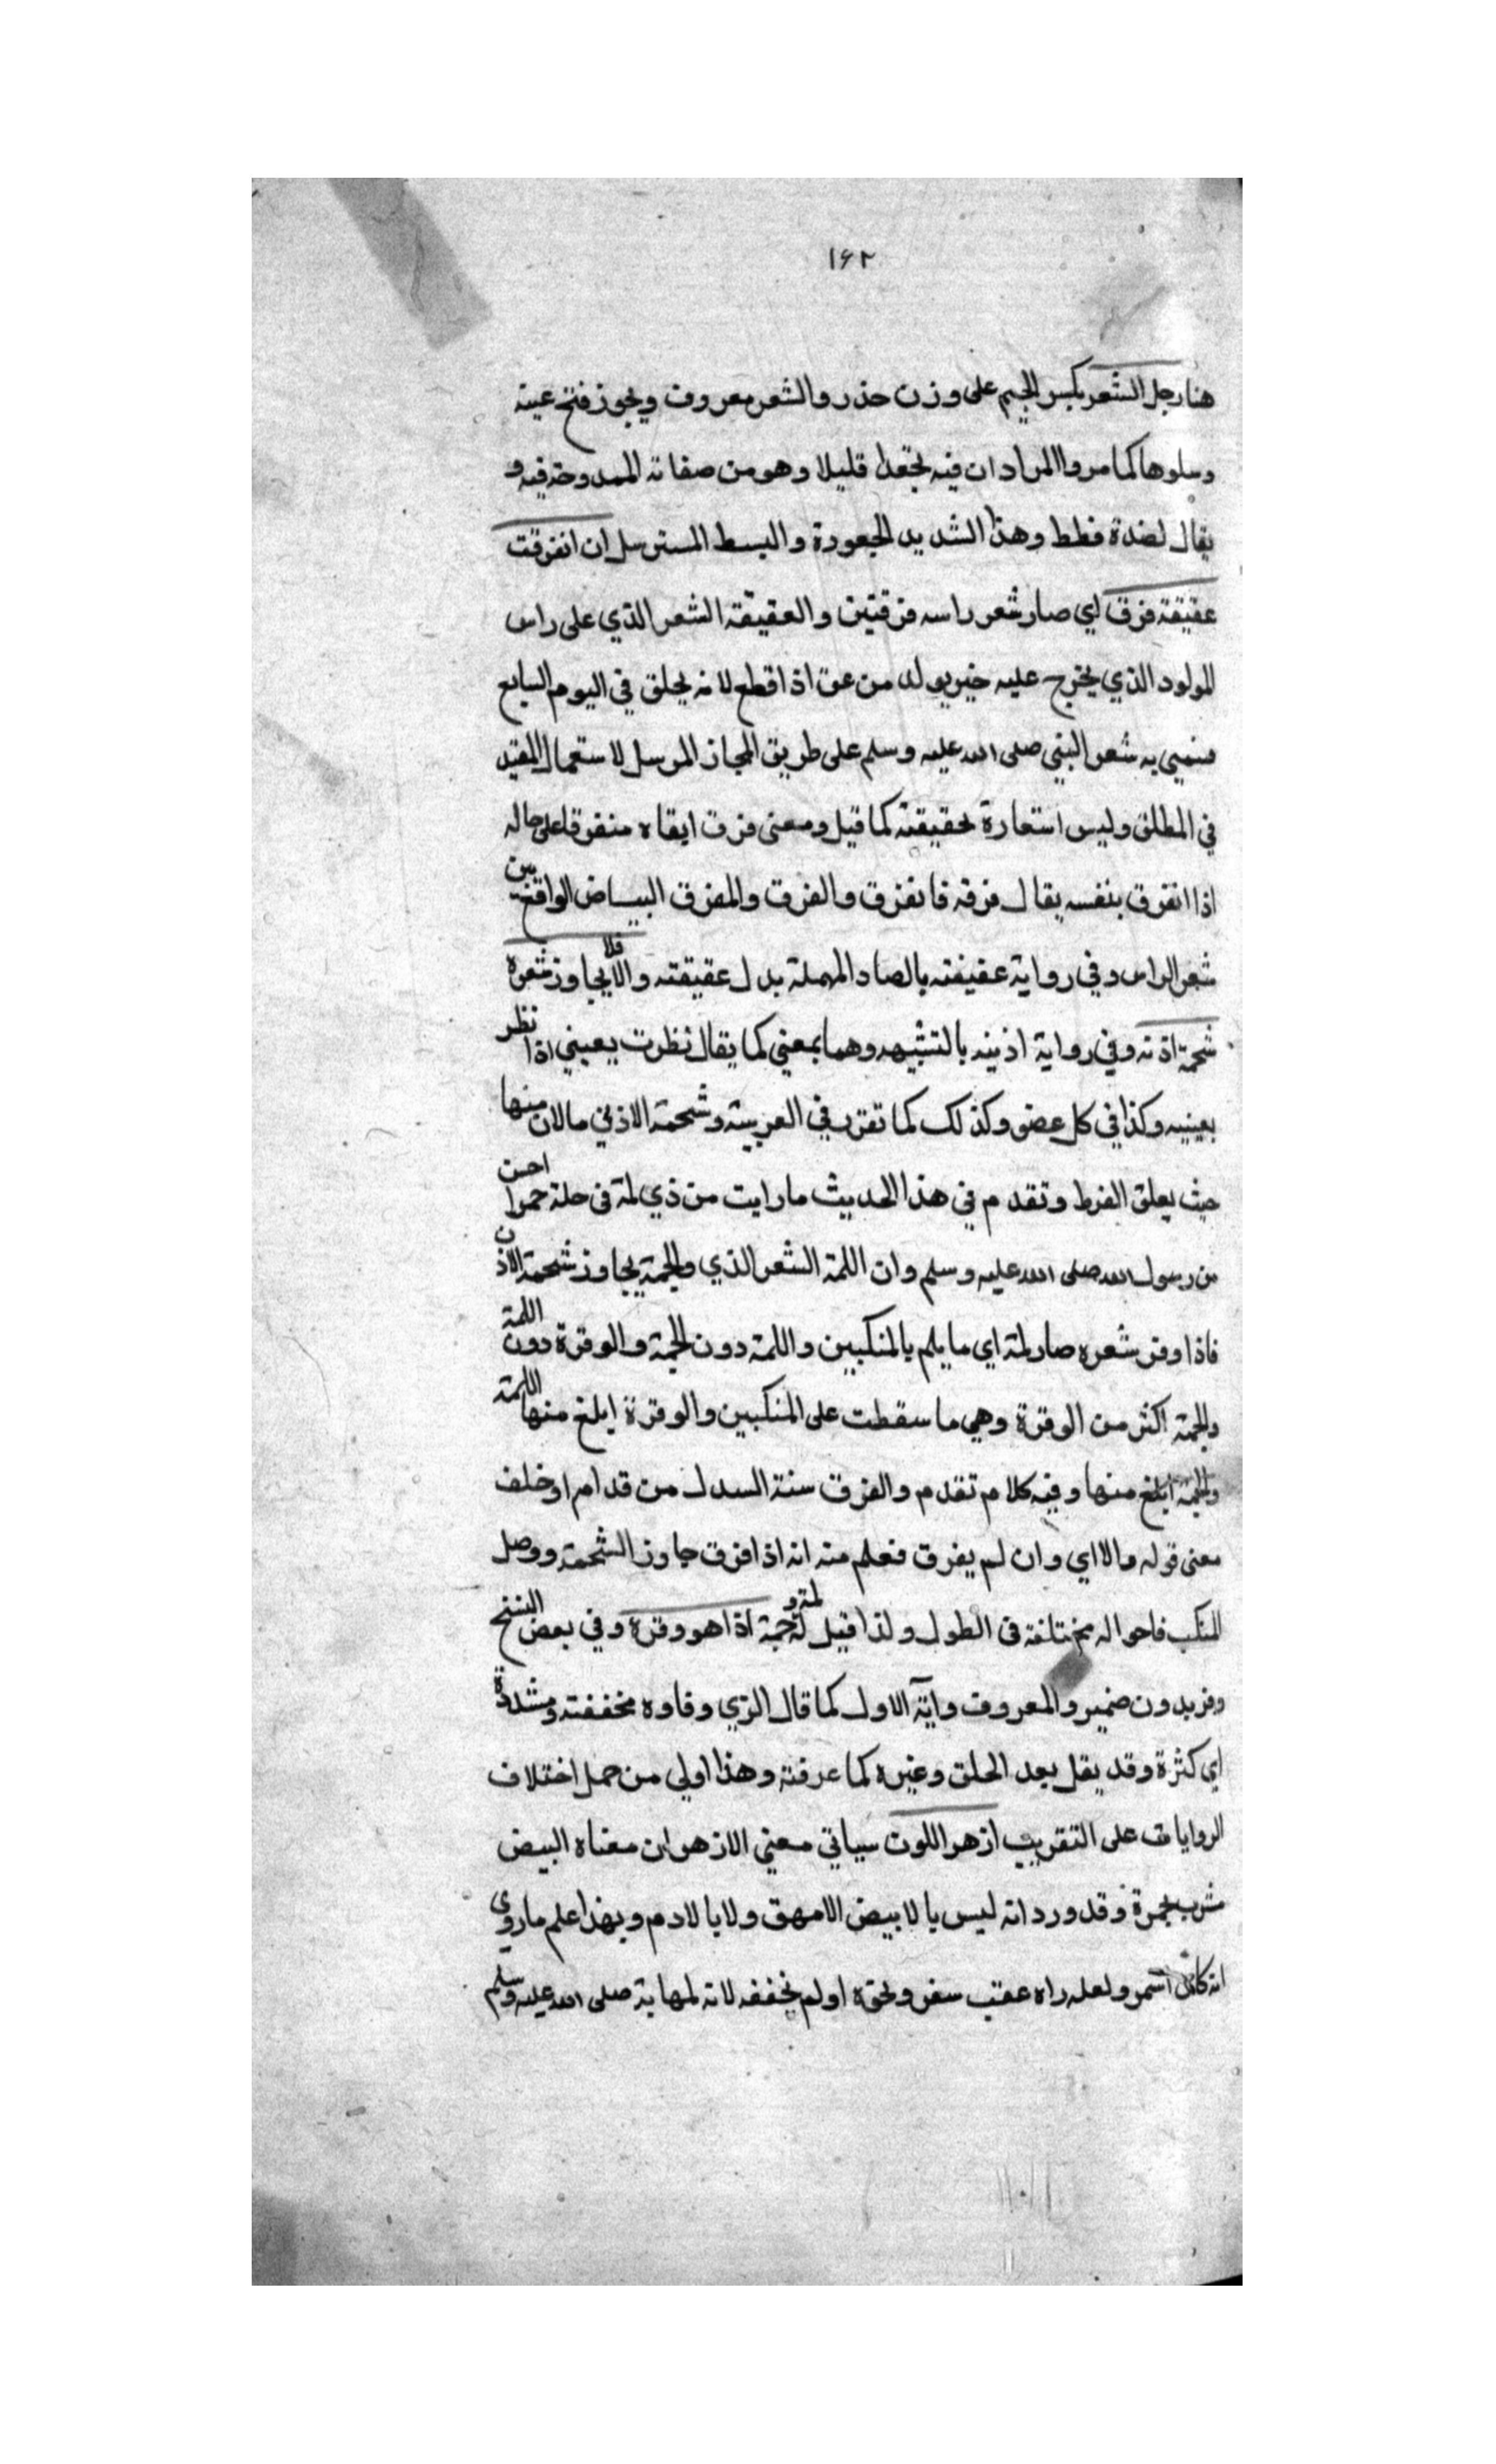 ١٦٢
هنا رجل الشعر بكسر الجيم على وزن حذر والشعر معروف ويجوز فتح عينه
وسلوها كما مر والمراد ان فيه تجعدا قليلا وهو من صفاته الممدوحة فيه و
يقال لضدة قطط وهذا الشديد الجعودة والبسط المسترسل ان انفرقت
عقيقة فرق اي صار شعر راسه فرقتين والعقيقة الشعر الذي على راس
المولود الذي يخرج عليه حين يولد من عق اذا قطع لانه يحلق في اليوم السابع
فسمي به شعر النبي صلى الله عليه وسلم على طريق المجاز المرسل لاستعمال المقيد
في المطلق وليس استعارة لحقيقته كما قيل ومعنى فرق ابقاه متفرقا على حاله
اذا انفرق بنفسه يقال فرقه فانفرق والفرق والمفرق البياض الواقع بين
شعر الراس وفي رواية عقيصته بالصاد المهملة بدل عقيقته والا فلا يجاوز شعره
شحمة اذنه وفي رواية اذنيه بالتثنيه وهما بمعني كما يقال نظرت بعيني اذا نظر
بعينيه وكذا في كل عضو وكذلك كما تقرر في العربية وشحمة الاذني مالان منها
حيث يعلق القرط وتقدم في هذا الحديث ما رايت من ذي لمة في حلة حمرا احسن
من رسول الله صلى الله عليه وسلم وان اللمة الشعر الذي والجمة يجاوز شحمة الاذن
فاذا وفر شعره صار لمة اي ما يلم بالمنكبين واللمة دون الجمة والوفرة دون اللمة
والجمة اكثر من الوفرة وهي ما سقطت على المنكبين والوفرة ابلغ منها اللمة
والجمة ابلغ منها وفيه كلام تقدم والفرق سنة السدل من قدام او خلف
معنى قوله والا اي وان لم يفرق فعلم منه انه اذا فرق جاوز الشحمة ووصل
للمنكب فاحواله مختلفة في الطول ولذا قيل له لمة و جمة اذا هو وفره وفي بعض النسخ
وفر بدون ضمير والمعروف رواية الاول كما قال الزي وفاوه مخففة ومشددة
اي كثرة وقد يقل بعد الحلق وغيره كما عرفته وهذا اولي من حمل اختلاف
الروايات على التقريب ازهر اللون سياتي معني الازهر ان معناه البيض
مشرب بحمرة وقد ورد انه ليس بالابيض الامهق ولا بالادم وبهذا علم ما روي
انه كان اسمر ولعله راه عقب سفر ونحوه او لم يحققه لانه لمهابة صلى الله عليه وسلم